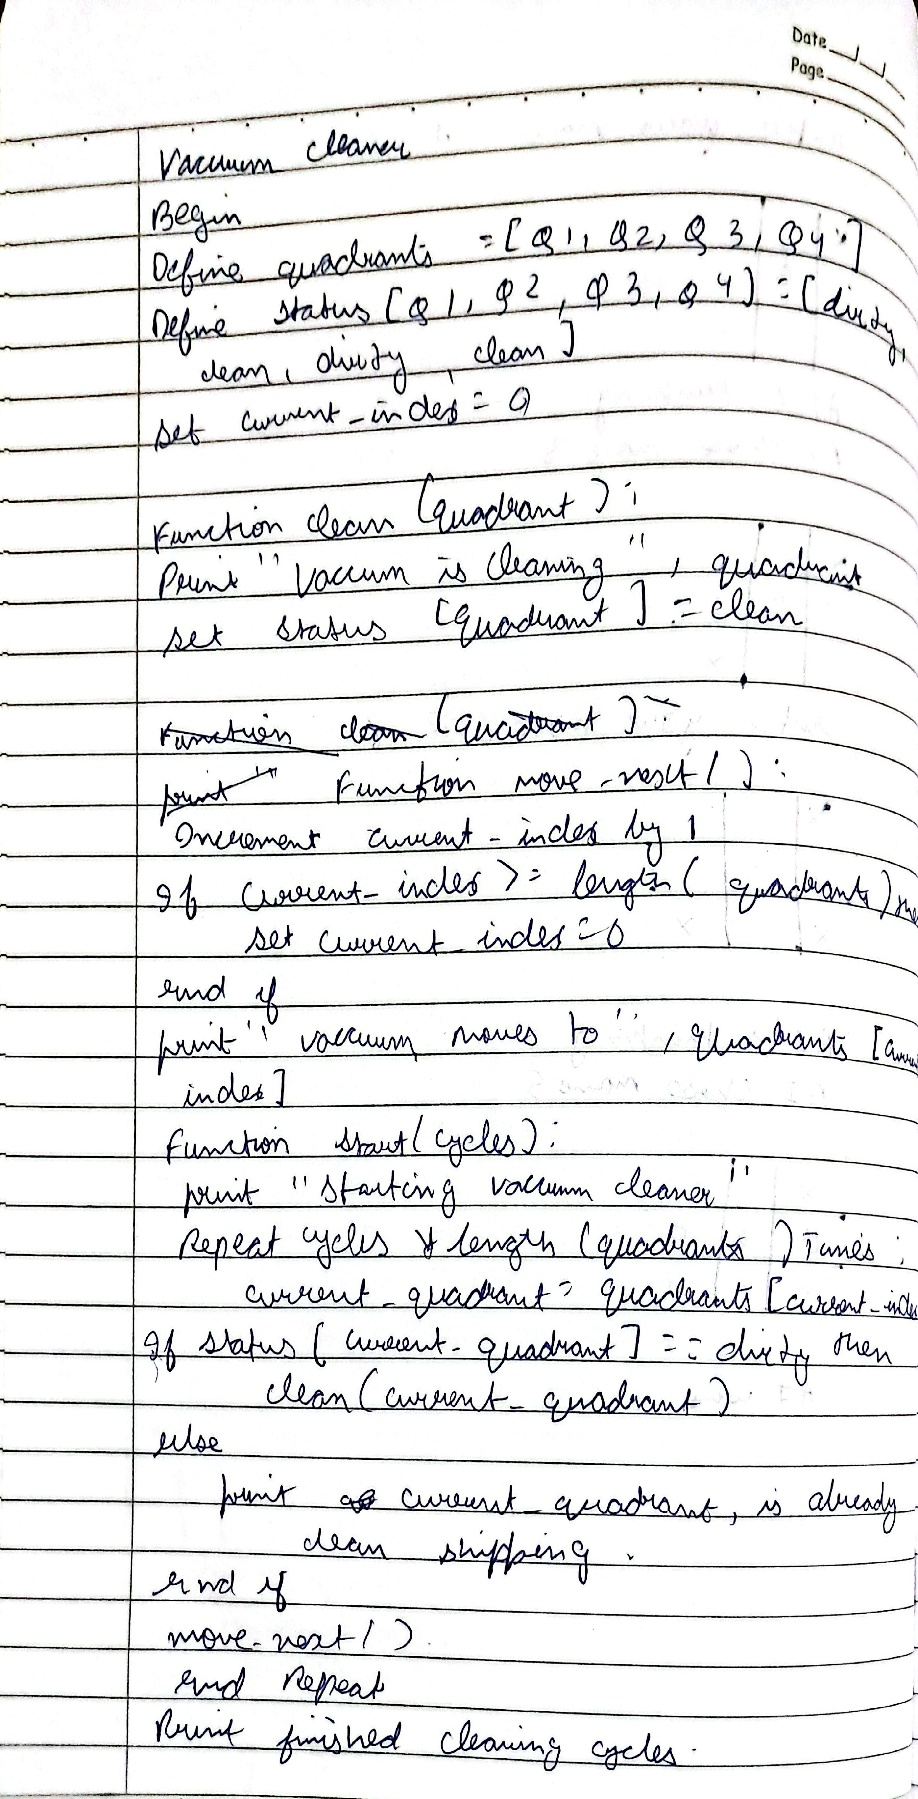 Date
Page
Vacuum cleaner
Begin
Define quadrants = [Q1, Q2, Q3, Q4]
Define status [Q1, Q2, Q3, Q4] = [dirty,
clean, dirty, clean]
set current_index = 0
Function clean (quadrant):
Print "Vaccum is cleaning", quadrant
set status [quadrant] = clean
Function clean (quadrant):
print " Function move_next():
Increment current_index by 1
If current_index >= length(quadrants) the
set current_index = 0
end if
print "vaccum moves to", quadrants [curr
index]
Function start(cycles):
print "starting vaccum cleaner"
Repeat cycles * length (quadrants) Times:
current_quadrant = quadrants [current_inde
If status [current_quadrant] == dirty then
clean(current_quadrant)
else
print current_quadrant, is already
clean skipping.
end if
move_next()
end Repeat
Print finished cleaning cycles.